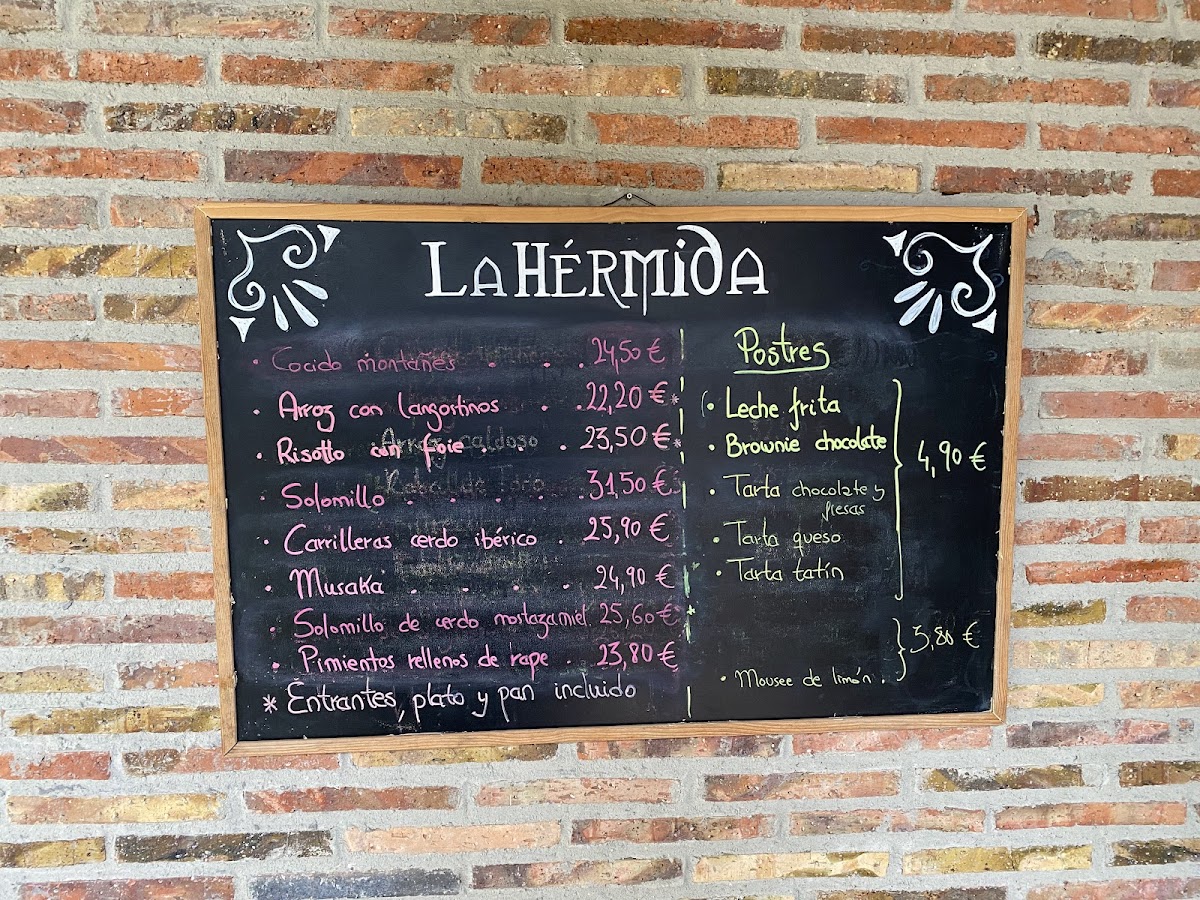 LA HÉRMIDA
· Cocido montañés . . . 24,50 €
· Arroz con langostinos . . 22,20 € *
· Risotto con foie . . . 23,50 € *
· Solomillo . . . . . 31,50 €
· Carrilleras cerdo ibérico . 25,90 €
· Musaka . . . . . 24,90 €
· Solomillo de cerdo mostaza miel 25,60 €
· Pimientos rellenos de rape . 23,80 €
* Entrantes, plato y pan incluido
Postres
· Leche frita
· Brownie chocolate
4,90 €
· Tarta chocolate y
fresas
· Tarta queso
· Tarta tatín
5,80 €
· Mousee de limón .